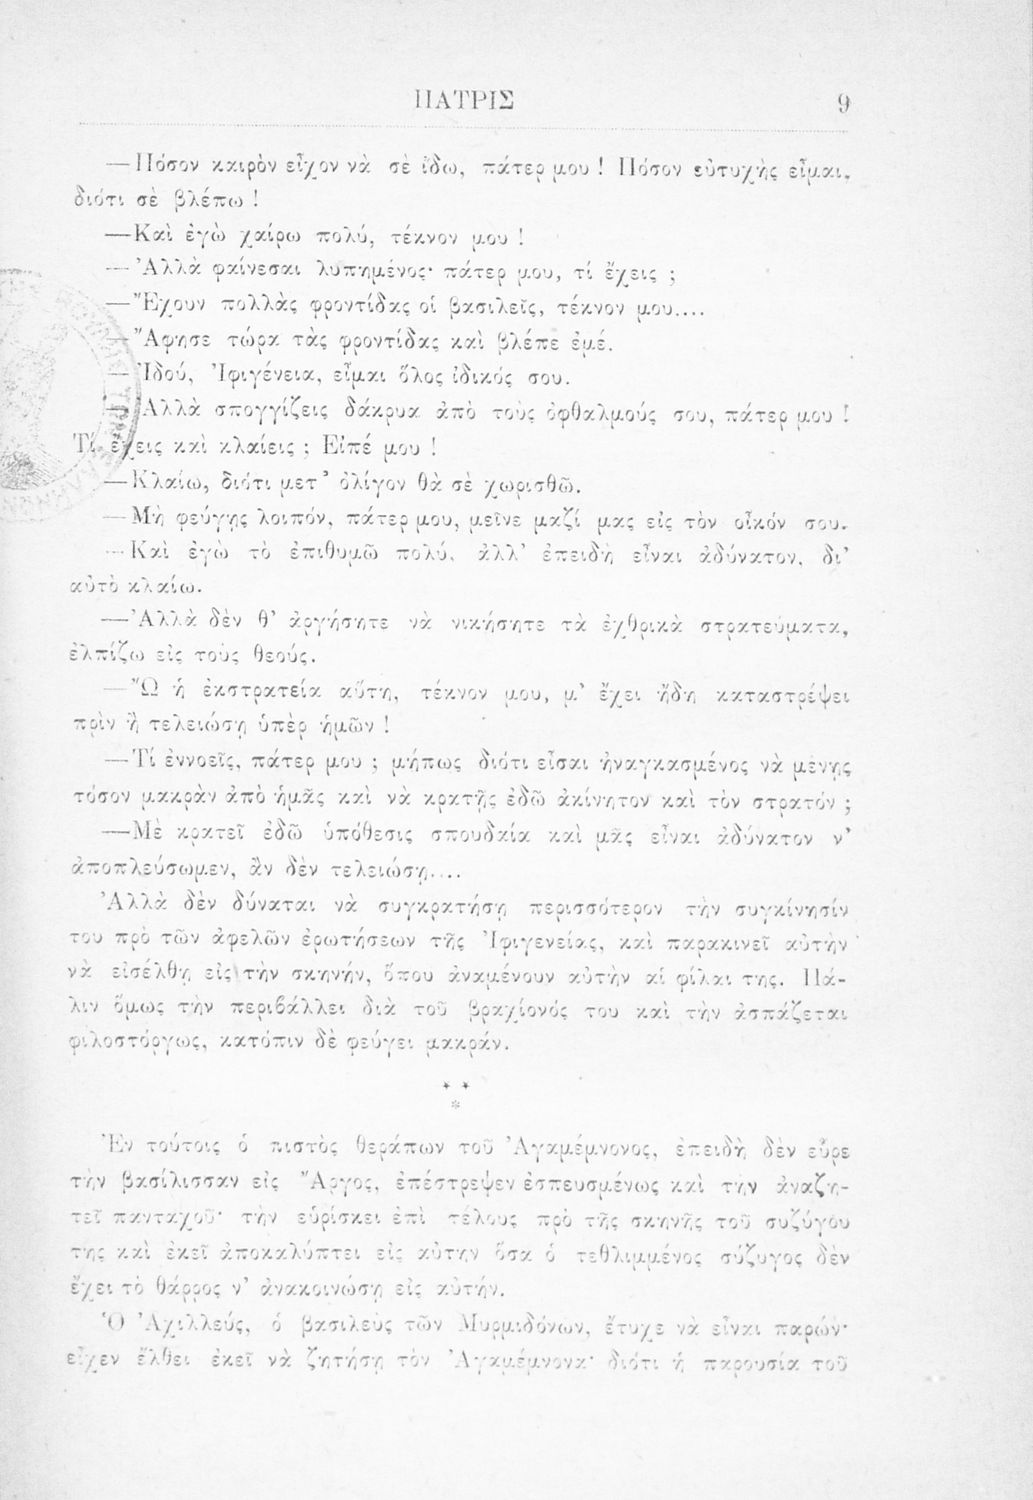 ΠΑΤΡΙΣ 9
—Πόσον καιρὸν εἶχον νὰ σὲ ἴδω, πάτερ μου! Πόσον εὐτυχὴς εἶμαι,
διότι σὲ βλέπω!
—Καὶ ἐγὼ χαίρω πολύ, τέκνον μου!
—Ἀλλὰ φαίνεσαι λυπημένος· πάτερ μου, τί ἔχεις;
—Ἔχουν πολλὰς φροντίδας οἱ βασιλεῖς, τέκνον μου....
—Ἄφησε τώρα τὰς φροντίδας καὶ βλέπε ἐμέ.
—Ἰδού, Ἰφιγένεια, εἶμαι ὅλος ἰδικός σου.
—Ἀλλὰ σπογγίζεις δάκρυα ἀπὸ τοὺς ὀφθαλμούς σου, πάτερ μου!
Τί ἔχεις καὶ κλαίεις; Εἰπέ μου!
—Κλαίω, διότι μετ' ὀλίγον θὰ σὲ χωρισθῶ.
—Μὴ φεύγῃς λοιπόν, πάτερ μου, μεῖνε μαζί μας εἰς τὸν οἶκόν σου.
—Καὶ ἐγὼ τὸ ἐπιθυμῶ πολύ, ἀλλ' ἐπειδὴ εἶναι ἀδύνατον, δι'
αὐτὸ κλαίω.
—Ἀλλὰ δὲν θ' ἀργήσητε νὰ νικήσητε τὰ ἐχθρικὰ στρατεύματα,
ἐλπίζω εἰς τοὺς θεούς.
—Ὢ ἡ ἐκστρατεία αὕτη, τέκνον μου, μ' ἔχει ἤδη καταστρέψει
πρὶν ἢ τελειώσῃ ὑπὲρ ἡμῶν!
—Τί ἐννοεῖς, πάτερ μου; μήπως διότι εἶσαι ἠναγκασμένος νὰ μένῃς
τόσον μακρὰν ἀπὸ ἡμᾶς καὶ νὰ κρατῇς ἐδῶ ἀκίνητον καὶ τὸν στρατόν;
—Μὲ κρατεῖ ἐδῶ ὑπόθεσις σπουδαία καὶ μᾶς εἶναι ἀδύνατον ν'
ἀποπλεύσωμεν, ἂν δὲν τελειώσῃ....
Ἀλλὰ δὲν δύναται νὰ συγκρατήσῃ περισσότερον τὴν συγκίνησίν
του πρὸ τῶν ἀφελῶν ἐρωτήσεων τῆς Ἰφιγενείας, καὶ παρακινεῖ αὐτὴν
νὰ εἰσέλθῃ εἰς τὴν σκηνήν, ὅπου ἀναμένουν αὐτὴν αἱ φίλαι της. Πά-
λιν ὅμως τὴν περιβάλλει διὰ τοῦ βραχίονός του καὶ τὴν ἀσπάζεται
φιλοστόργως, κατόπιν δὲ φεύγει μακράν.
* *
*
Ἐν τούτοις ὁ πιστὸς θεράπων τοῦ Ἀγαμέμνονος, ἐπειδὴ δὲν εὗρε
τὴν βασίλισσαν εἰς Ἄργος, ἐπέστρεψεν ἐσπευσμένως καὶ τὴν ἀναζη-
τεῖ πανταχοῦ· τὴν εὑρίσκει ἐπὶ τέλους πρὸ τῆς σκηνῆς τοῦ συζύγου
της καὶ ἐκεῖ ἀποκαλύπτει εἰς αὐτὴν ὅσα ὁ τεθλιμμένος σύζυγος δὲν
ἔχει τὸ θάρρος ν' ἀνακοινώσῃ εἰς αὐτήν.
Ὁ Ἀχιλλεύς, ὁ βασιλεὺς τῶν Μυρμιδόνων, ἔτυχε νὰ εἶναι παρών·
εἶχεν ἔλθει ἐκεῖ νὰ ζητήσῃ τὸν Ἀγαμέμνονα· διότι ἡ παρουσία τοῦ